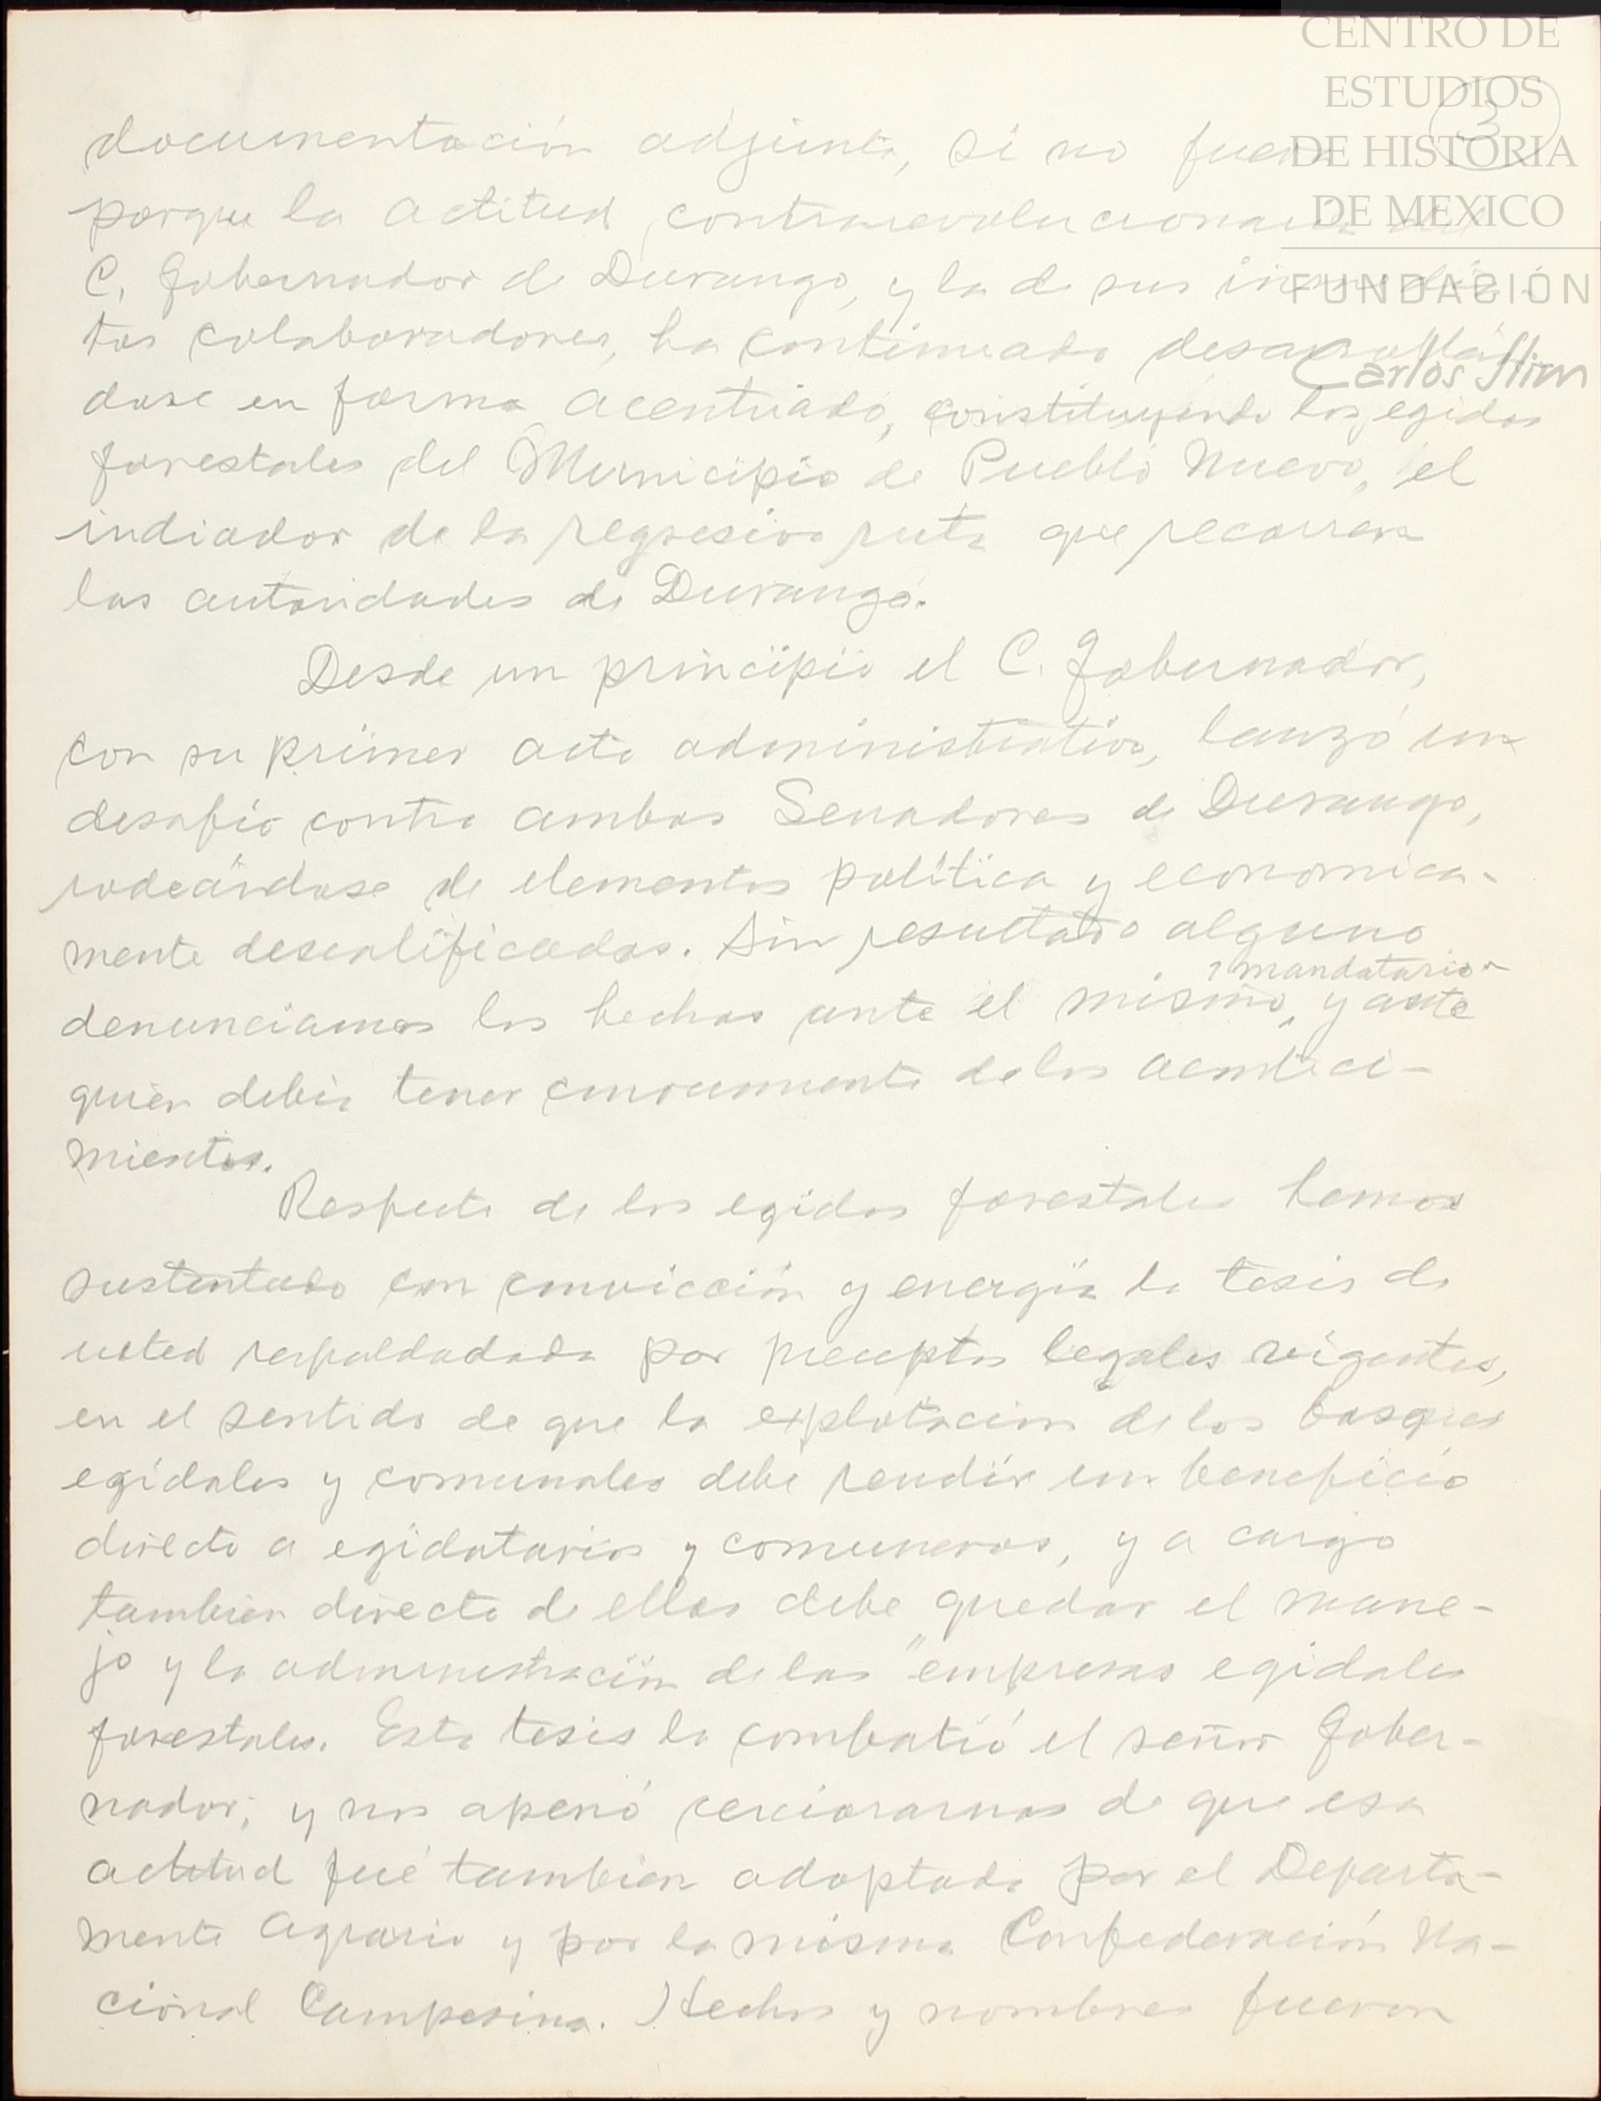 CENTRO DE
ESTUDIOS
DE HISTORIA
DE MEXICO
FUNDACIÓN
Carlos Slim
3
documentación adjunta, si no fuera
porque la actitud contrarevolucionaria del
C. Gobernador de Durango, y la de sus inmedia-
tos colaboradores, ha continuado desarrollán-
dose en forma acentuada, constituyendo los egidos
forestales del Municipio de Pueblo Nuevo, el
indiador de la regresiva ruta que recorren
las autoridades de Durango.
Desde un principio el C. Gobernador,
con su primer acto administrativo, lanzó un
desafío contra ambos Senadores de Durango,
rodeándose de elementos política y economica-
mente descalificados. Sin resultado alguno
denunciamos los hechos ante el mismo mandatario, y ante
quien debía tener conocimiento de los aconteci-
mientos.
Respecto de los egidos forestales hemos
sustentado con convicción y energía la tesis de
usted respaldadada por preceptos legales vigentes,
en el sentido de que la explotación de los bosques
egidales y comunales debe rendir un beneficio
directo a egidatarios y comuneros, y a cargo
tambien directo de ellos debe quedar el mane-
jo y la administración de las "empresas egidales
forestales. Esta tesis la combatió el señor Gober-
nador, y nos apenó cerciorarnos de que esa
actitud fué tambien adoptada por el Departa-
mento Agrario y por la misma Confederación Na-
cional Campesina. Hechos y nombres fueron